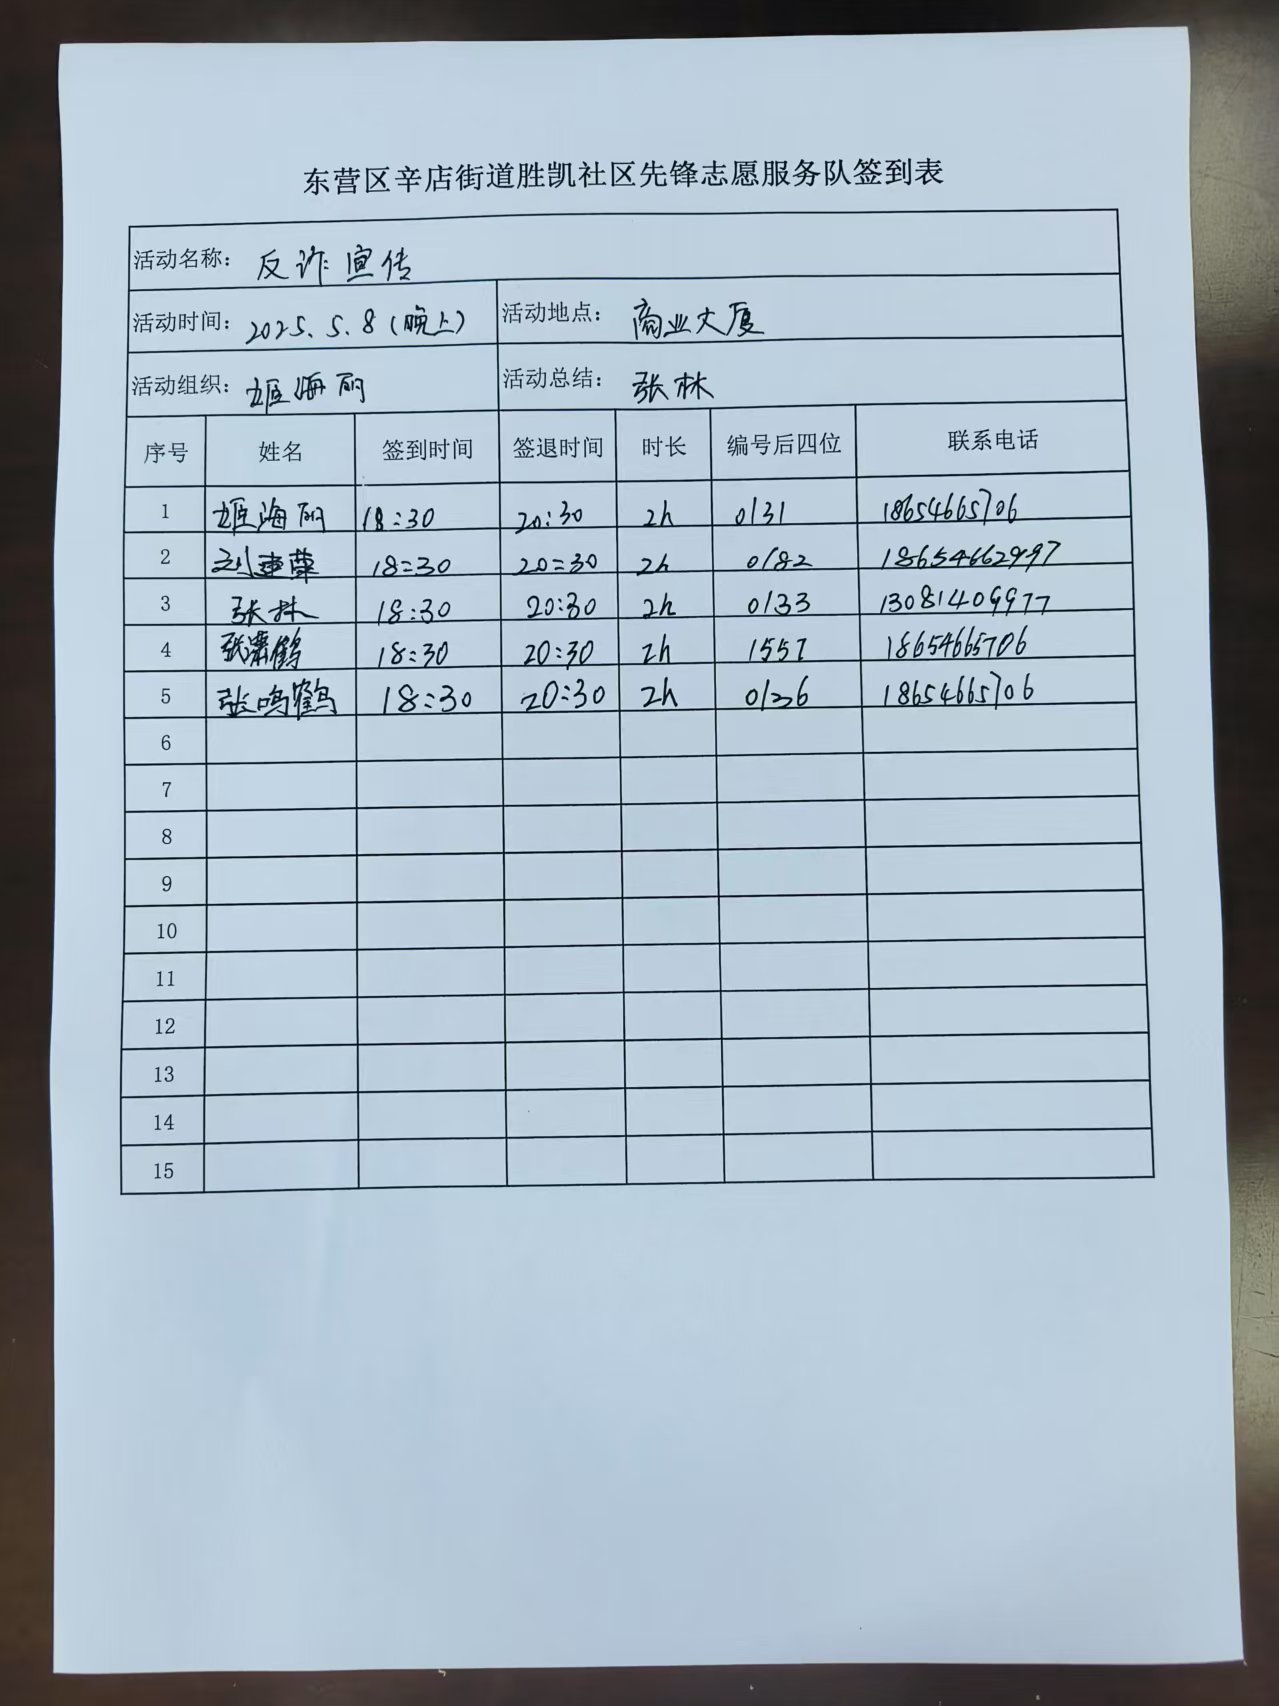 东营区辛店街道胜凯社区先锋志愿服务队签到表
活动名称: 反诈宣传
活动时间: 2025.5.8(晚上) 活动地点: 商业大厦
活动组织: 姬海丽 活动总结: 张林
序号 姓名 签到时间 签退时间 时长 编号后四位 联系电话
1 姬海丽 18:30 20:30 2h 0131 18654665706
2 刘建華 18:30 20:30 2h 0182 18654662997
3 张林 18:30 20:30 2h 0133 13081409977
4 张潇鹤 18:30 20:30 2h 1557 18654665706
5 张鸣鹤 18:30 20:30 2h 0136 18654665706
6
7
8
9
10
11
12
13
14
15